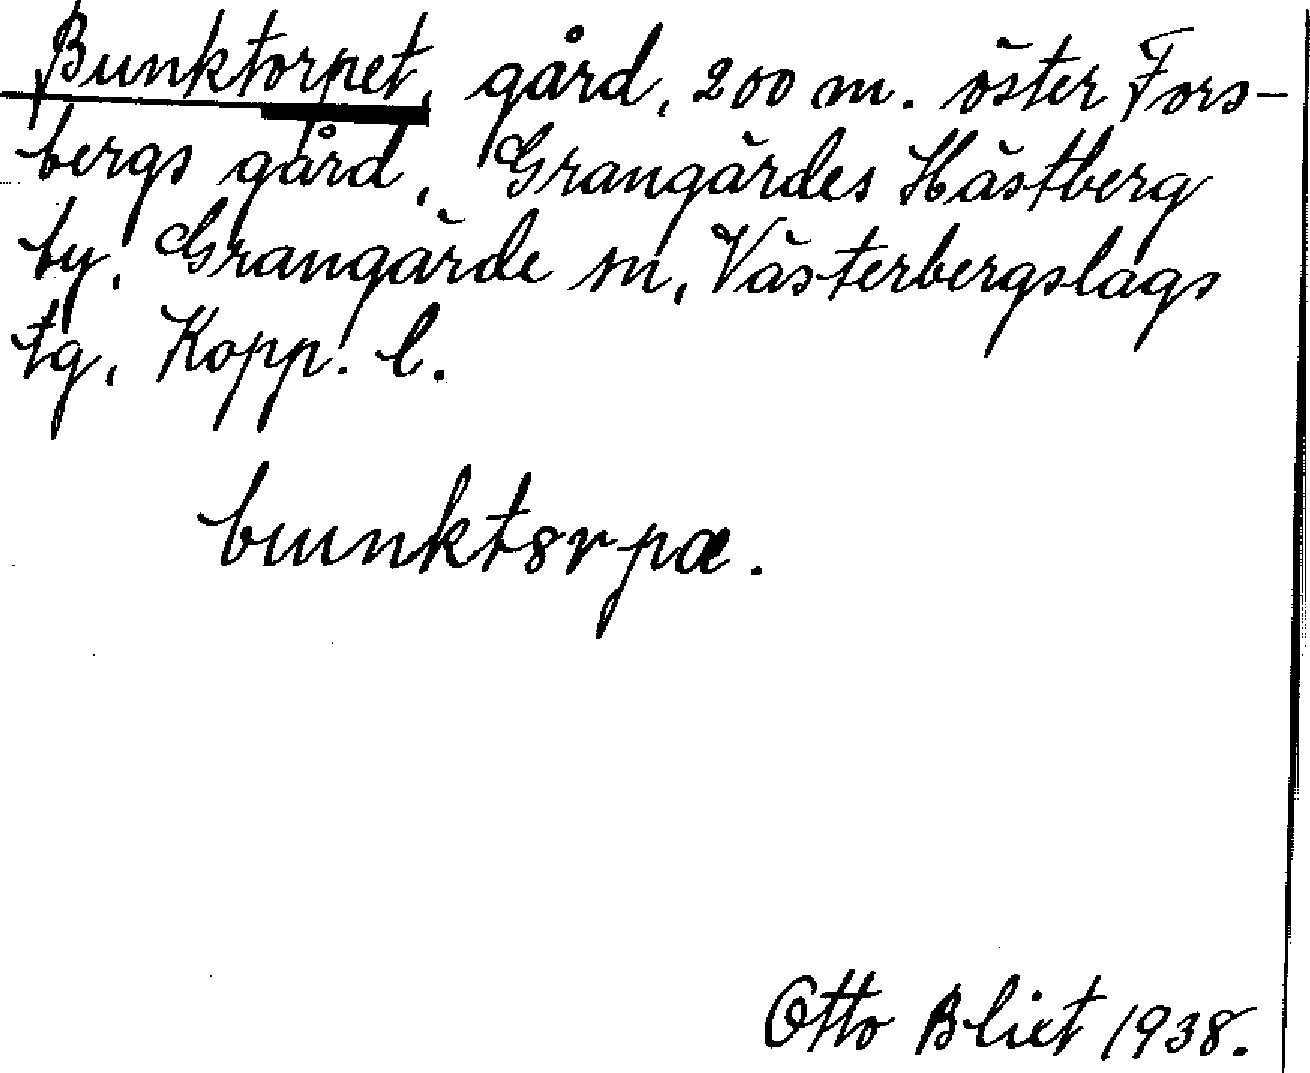 Bunktorpet, gård, 200 m. öster Fors-
bergs gård, Grangärdes Hästberg
by, Grangärde sn, Västerbergslags
tg, Kopp. l.
bunktɞrpæ.
Otto Blixt 1938.